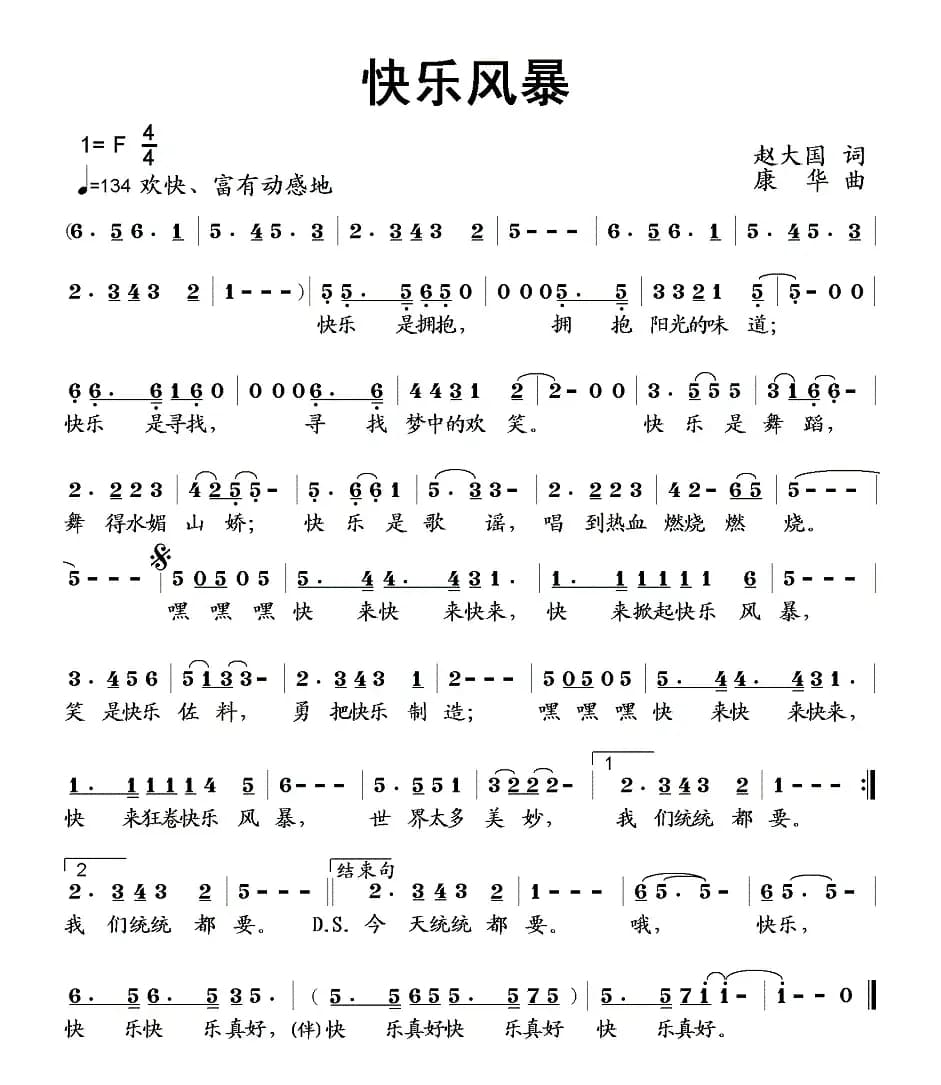 快乐风暴
1= F 4/4
赵大国 词
♩=134 欢快、富有动感地
康 华 曲
(6. 5 6. 1 | 5. 4 5. 3 | 2. 3 4 3 2 | 5 - - - | 6. 5 6. 1 | 5. 4 5. 3 |
2. 3 4 3 2 | 1 - - - ) | 5 5. 5 6 5 0 | 0 0 0 5. 5 | 3 3 2 1 5 | 5 - 0 0 |
快乐 是拥抱, 拥 抱 阳光的味 道;
6 6. 6 1 6 0 | 0 0 0 6. 6 | 4 4 3 1 2 | 2 - 0 0 | 3. 5 5 5 | 3 1 6 6 - |
快乐 是寻找, 寻 找 梦中的欢 笑。 快 乐 是 舞 蹈,
2. 2 2 3 | 4 2 5 5 - | 5. 6 6 1 | 5. 3 3 - | 2. 2 2 3 | 4 2 - 6 5 | 5 - - - |
舞 得水媚 山 娇; 快 乐 是 歌 谣, 唱 到热血 燃烧 燃 烧。
5 - - - | 5 0 5 0 5 | 5. 4 4. 4 3 1. | 1. 1 1 1 1 1 6 | 5 - - - |
嘿 嘿 嘿 快 来快 来快来, 快 来掀起快乐 风 暴,
3. 4 5 6 | 5 1 3 3 - | 2. 3 4 3 1 | 2 - - - | 5 0 5 0 5 | 5. 4 4. 4 3 1. |
笑 是快乐 佐 料, 勇 把快乐 制 造; 嘿 嘿 嘿 快 来快 来快来,
1. 1 1 1 1 4 5 | 6 - - - | 5. 5 5 1 | 3 2 2 2 - | 1 2. 3 4 3 2 | 1 - - - :|
快 来狂卷快乐 风 暴, 世 界太多 美 妙, 我 们统统 都 要。
2 结束句
2. 3 4 3 2 | 5 - - - || 2. 3 4 3 2 | 1 - - - | 6 5. 5 - | 6 5. 5 - |
我 们统统 都 要。 D.S. 今 天统统 都 要。 哦, 快乐,
6. 5 6. 5 3 5. | ( 5. 5 6 5 5. 5 7 5 ) | 5. 5 7 1 1 - | 1 - - 0 ||
快 乐快 乐真好, (伴)快 乐真好快 乐真好 快 乐真好。